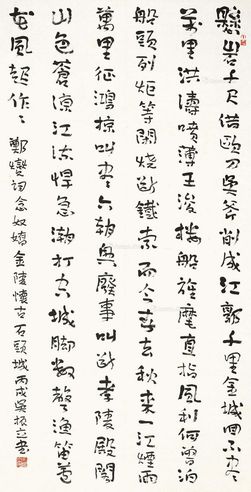 懸岩千尺借歐刀吳斧削成江郭千里金城回不盡
万里洪濤噴薄王浚樓船旌麾直指風利何曾泊
船頭列炬等閑燒斷鐵索而今春去秋來一江煙雨
萬里征鴻掠叫盡六朝興廢事叫斷孝陵殿閣
山色蒼涼江流悍急潮打空城腳數聲漁笛蘆
花風起作作 鄭燮詞念奴嬌金陵懷古石頭城丙戌吳振立書